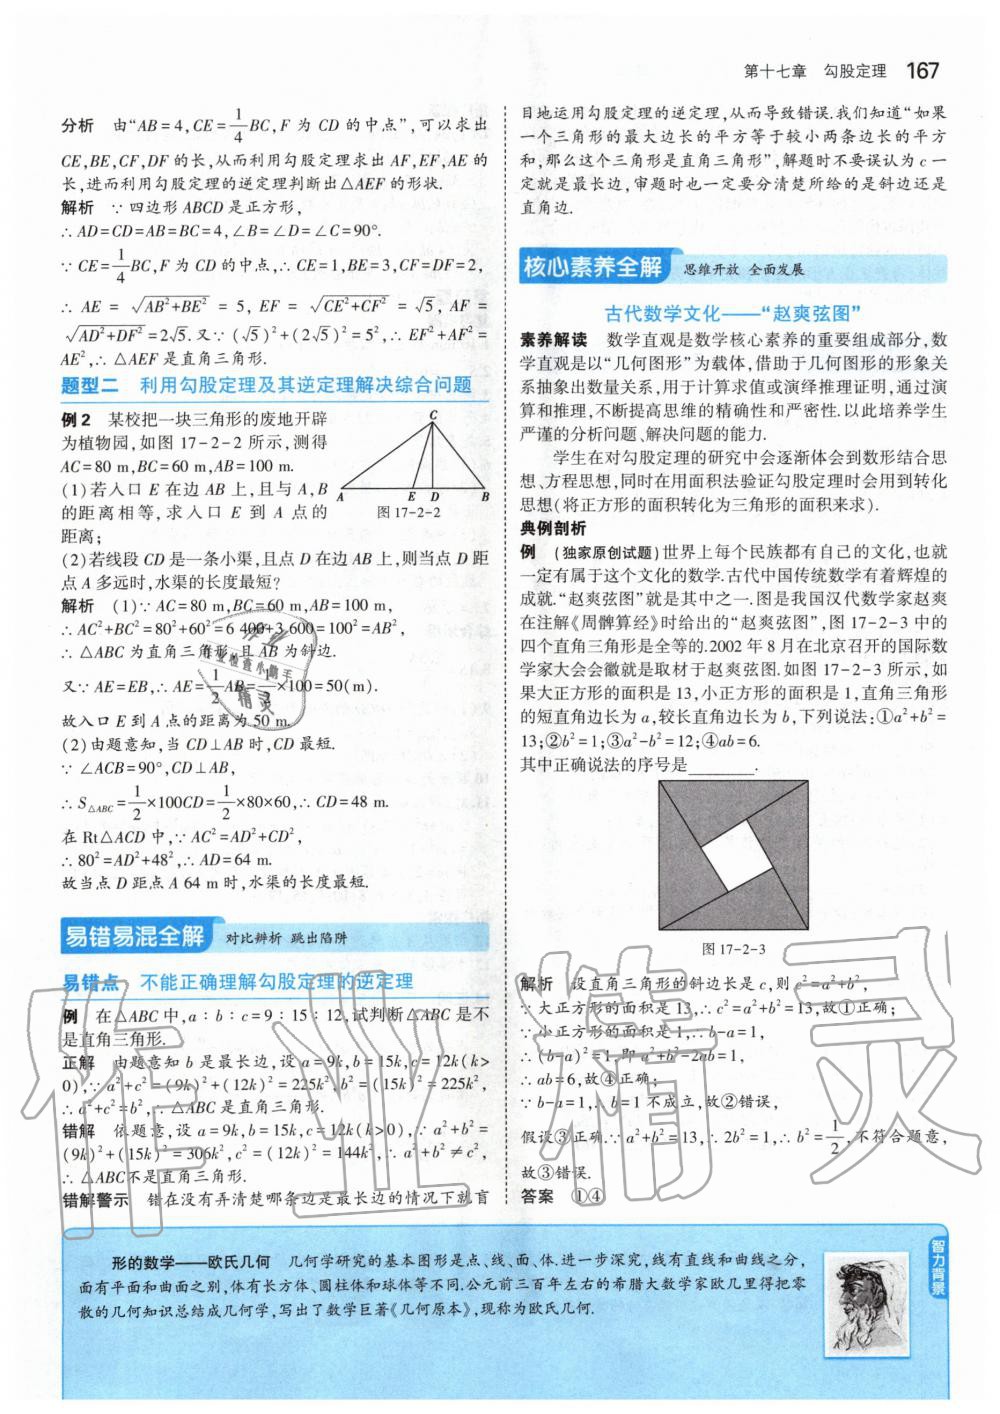 第十七章　勾股定理　167
分析　由“AB=4,CE=1/4BC,F 为 CD 的中点”,可以求出
CE,BE,CF,DF 的长,从而利用勾股定理求出 AF,EF,AE 的
长,进而利用勾股定理的逆定理判断出△AEF 的形状.
解析　∵ 四边形 ABCD 是正方形,
∴ AD=CD=AB=BC=4,∠B=∠D=∠C=90°.
∵ CE=1/4BC,F 为 CD 的中点,∴ CE=1,BE=3,CF=DF=2,
∴ AE = √(AB²+BE²) = 5, EF = √(CE²+CF²) = √5, AF =
√(AD²+DF²)=2√5. 又∵ (√5)²+(2√5)²=5²,∴ EF²+AF²=
AE²,∴ △AEF 是直角三角形.
题型二　利用勾股定理及其逆定理解决综合问题
例 2　某校把一块三角形的废地开辟
为植物园,如图 17-2-2 所示,测得
AC=80 m,BC=60 m,AB=100 m.
(1)若入口 E 在边 AB 上,且与 A,B
的距离相等,求入口 E 到 A 点的
距离;
C
A　E　D　B
图 17-2-2
(2)若线段 CD 是一条小渠,且点 D 在边 AB 上,则当点 D 距
点 A 多远时,水渠的长度最短?
解析　(1)∵ AC=80 m,BC=60 m,AB=100 m,
∴ AC²+BC²=80²+60²=6 400+3 600=100²=AB²,
∴ △ABC 为直角三角形,且 AB 为斜边.
又∵ AE=EB,∴ AE=1/2AB=1/2×100=50(m).
故入口 E 到 A 点的距离为 50 m.
(2)由题意知,当 CD⊥AB 时,CD 最短.
∵ ∠ACB=90°,CD⊥AB,
∴ S△ABC=1/2×100CD=1/2×80×60,∴ CD=48 m.
在 Rt△ACD 中,∵ AC²=AD²+CD²,
∴ 80²=AD²+48²,∴ AD=64 m.
故当点 D 距点 A 64 m 时,水渠的长度最短.
易错易混全解　对比辨析 跳出陷阱
易错点　不能正确理解勾股定理的逆定理
例　在△ABC 中,a∶b∶c=9∶15∶12,试判断△ABC 是不
是直角三角形.
正解　由题意知 b 是最长边,设 a=9k,b=15k,c=12k(k>
0),∵ a²+c²=(9k)²+(12k)²=225k²,b²=(15k)²=225k²,
∴ a²+c²=b²,∴ △ABC 是直角三角形.
错解　依题意,设 a=9k,b=15k,c=12k(k>0),∵ a²+b²=
(9k)²+(15k)²=306k²,c²=(12k)²=144k²,∴ a²+b²≠c²,
∴ △ABC不是直角三角形.
错解警示　错在没有弄清楚哪条边是最长边的情况下就盲
目地运用勾股定理的逆定理,从而导致错误.我们知道“如果
一个三角形的最大边长的平方等于较小两条边长的平方
和,那么这个三角形是直角三角形”,解题时不要误认为 c 一
定就是最长边,审题时也一定要分清楚所给的是斜边还是
直角边.
核心素养全解　思维开放 全面发展
古代数学文化——“赵爽弦图”
素养解读　数学直观是数学核心素养的重要组成部分,数
学直观是以“几何图形”为载体,借助于几何图形的形象关
系抽象出数量关系,用于计算求值或演绎推理证明,通过演
算和推理,不断提高思维的精确性和严密性.以此培养学生
严谨的分析问题、解决问题的能力.
学生在对勾股定理的研究中会逐渐体会到数形结合思
想、方程思想,同时在用面积法验证勾股定理时会用到转化
思想(将正方形的面积转化为三角形的面积来求).
典例剖析
例　(独家原创试题)世界上每个民族都有自己的文化,也就
一定有属于这个文化的数学.古代中国传统数学有着辉煌的
成就.“赵爽弦图”就是其中之一.图是我国汉代数学家赵爽
在注解《周髀算经》时给出的“赵爽弦图”,图 17-2-3 中的
四个直角三角形是全等的.2002 年 8 月在北京召开的国际数
学家大会会徽就是取材于赵爽弦图.如图 17-2-3 所示,如
果大正方形的面积是 13,小正方形的面积是 1,直角三角形
的短直角边长为 a,较长直角边长为 b,下列说法:①a²+b²=
13;②b²=1;③a²-b²=12;④ab=6.
其中正确说法的序号是________.
图 17-2-3
解析　设直角三角形的斜边长是 c,则 c²=a²+b²,
∵ 大正方形的面积是 13,∴ c²=a²+b²=13,故①正确;
∵ 小正方形的面积是 1,∴ b-a=1,
∴ (b-a)²=1,即 a²+b²-2ab=1,
∴ ab=6,故④正确;
∵ b-a=1,∴ b²=1 不成立,故②错误,
假设③正确.∵ a²+b²=13,∴ 2b²=1,∴ b²=1/2,不符合题意,
故③错误.
答案　①④
形的数学——欧氏几何　几何学研究的基本图形是点、线、面、体.进一步深究,线有直线和曲线之分,
面有平面和曲面之别,体有长方体、圆柱体和球体等不同.公元前三百年左右的希腊大数学家欧几里得把零
散的几何知识总结成几何学,写出了数学巨著《几何原本》,现称为欧氏几何.
智力背景
作业精灵